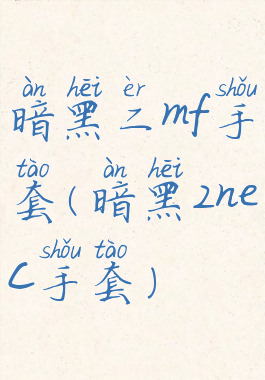 àn hēi èr shǒu
暗黑二mf手
tào àn hēi
套(暗黑2ne
shǒu tào
c手套)